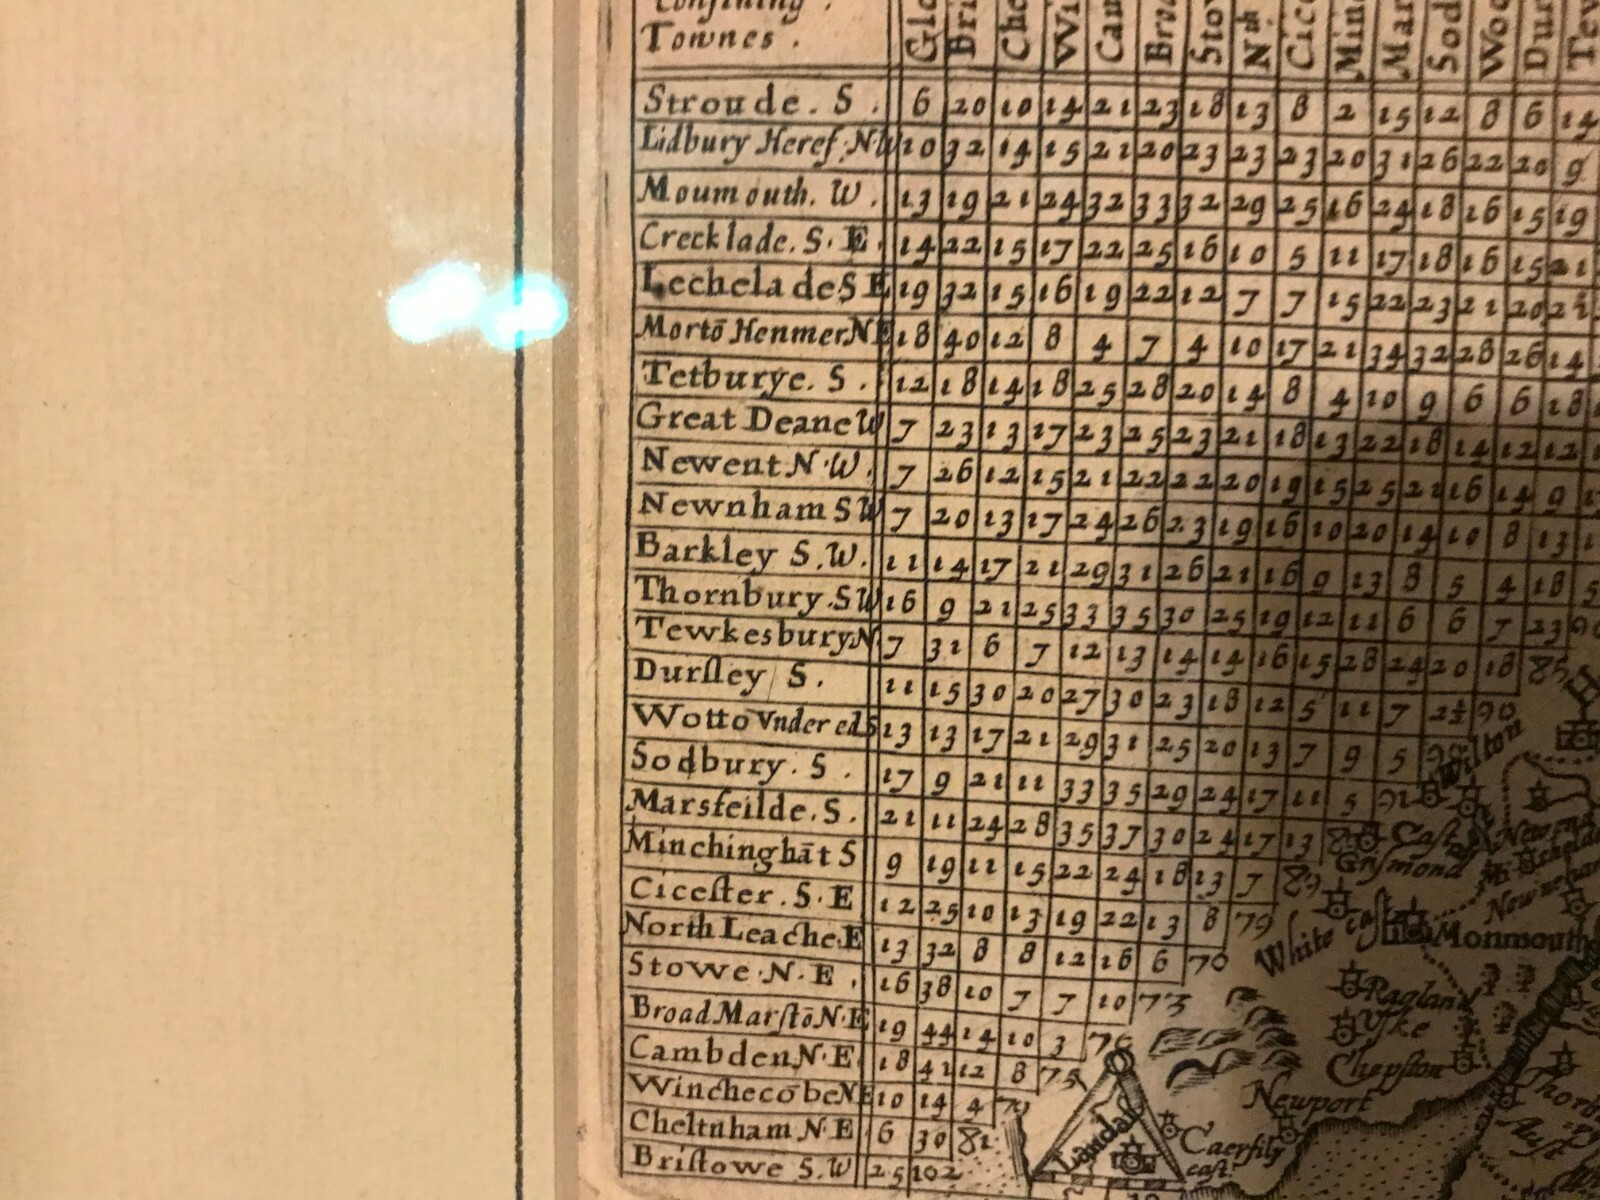 Confining .
Townes .
Glo Bri Che Wi Cam Bro Stow Nth Cice Min Mar Sod Woo Dur Tew
Stroude . S . 6 20 10 14 21 23 18 13 8 2 15 12 8 6 14
Lidbury Heref. N.W 10 32 14 15 21 20 23 23 23 20 31 26 22 20 9
Moumouth. W . 13 19 21 24 32 33 32 29 25 16 24 18 16 15 19
Crecklade. S. E. 14 22 15 17 22 25 16 10 5 11 17 18 16 15 21
Lechelade S E 19 32 15 16 19 22 12 7 7 15 22 23 21 20
Mortō Henmer N E 18 40 12 8 4 7 4 10 17 21 34 32 28 26 14
Tetburye. S . 12 18 14 18 25 28 20 14 8 4 10 9 6 6 18
Great Deane W 7 23 13 17 23 25 23 21 18 13 22 18 14 12 12
Newent N.W. 7 26 12 15 21 22 22 20 19 15 25 21 16 14 9
Newnham S W 7 20 13 17 24 26 23 19 16 10 20 14 10 8 13
Barkley S.W. 11 14 17 21 29 31 26 21 16 9 13 8 5 4 18 5
Thornbury. S W 16 9 21 25 33 35 30 25 19 12 11 6 6 7 23
Tewkesbury N. 7 31 6 7 12 13 14 14 16 15 28 24 20 18 85
Durſley S . 11 15 30 20 27 30 23 18 12 5 11 7 2½ 90
Wottō Vnder ed S 13 13 17 21 29 31 25 20 13 7 9 5
Wilton
Sodbury . S . 17 9 21 11 33 35 29 24 17 11 5 91
Marsfeilde. S . 21 11 24 28 35 37 30 24 17 13
Caſt
Griſmond
Minchinghāt S 9 19 11 15 22 24 18 13 7 89
Ciceſter . S . E 12 25 10 13 19 22 13 8 79
White caſt
Monmouth
North Leache. E 13 32 8 8 12 16 6 70
Stowe . N . E . 16 38 10 7 7 10 73
Ragland
Vſke
Broad Marſtō N . E 19 44 14 10 3 76
Chepſton
Cambden N . E 18 41 12 8 75
Newport
Winchecōbe N E 10 14 4 79
Landaf
Cheltnham N E 6 30 81
Caerfily
caſt.
Auſt
Briſtowe S . W 25 102